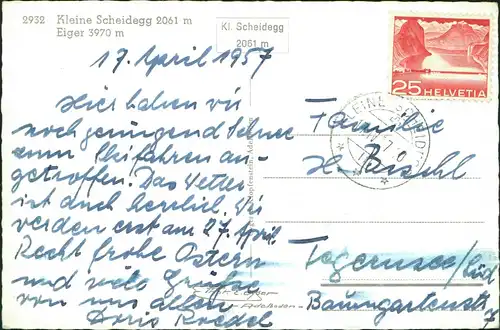 2932 Kleine Scheidegg 2061 m
Eiger 3970 m
Kl. Scheidegg
2061 m
25 HELVETIA
17. April 1957
Hier haben wir
noch genügend Schnee
zum Skifahren an-
getroffen. Das Wetter
ist auch herrlich. Wir
werden erst am 27. April.
Recht frohe Ostern
und viele Grüße
von uns allen
Doris Roedel
Familie
H.
Tegernsee/
Baumgartenstr
7
Adelboden